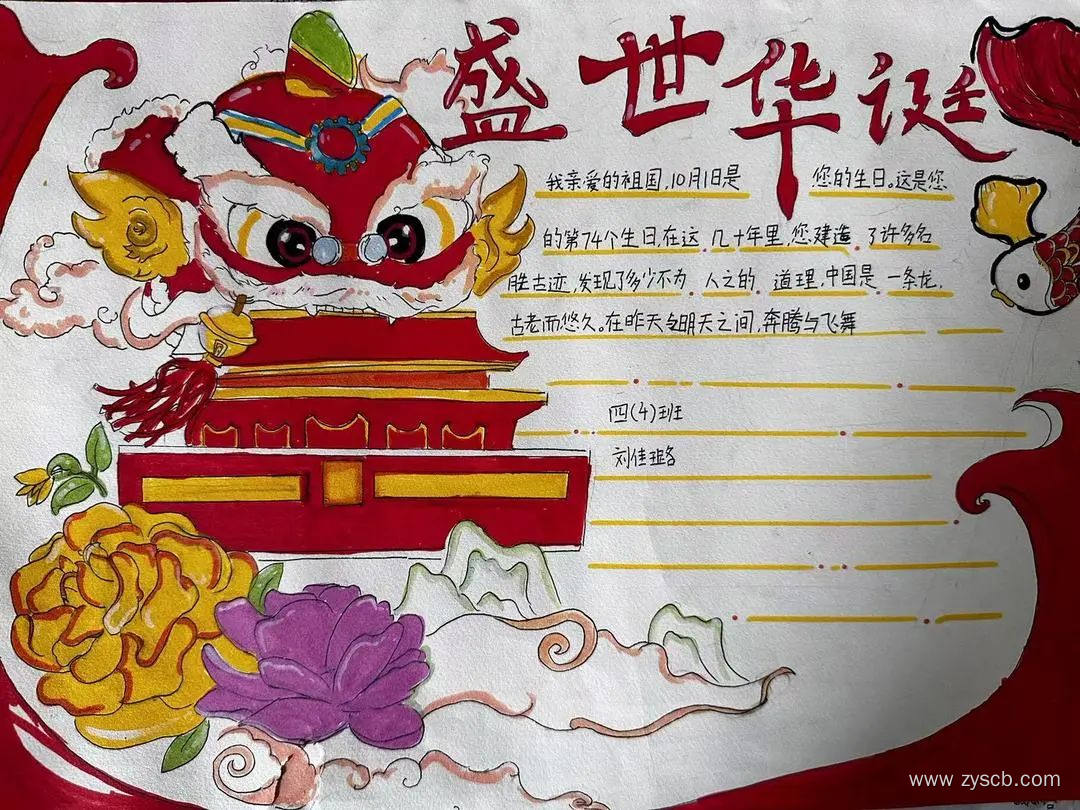 盛世华诞
我亲爱的祖国,10月1日是 您的生日。这是您
的第74个生日,在这,几十年里,您建造 了许多名
胜古迹,发现了多少不为 人之的 道理,中国是 一条龙,
古老而悠久。在昨天与明天之间,奔腾与飞舞
四(4)班
刘佳璐
www.zyscb.com